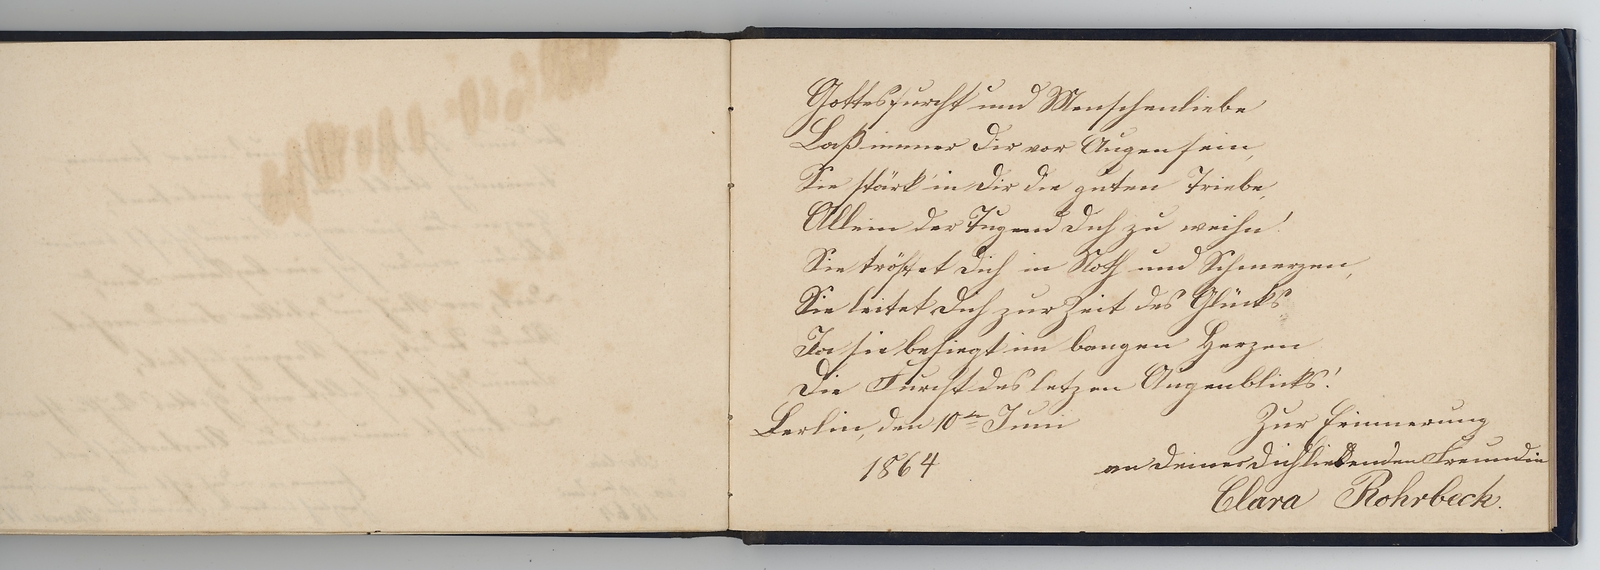 Gottesfurcht und Menschenliebe
Laß immer Dir vor Augen sein,
Sie stärk' in Dir die guten Triebe,
Allein der Tugend Dich zu weihn!
Sie tröstet Dich in Noth und Schmerzen,
Sie leitet Dich zur Zeit des Glücks
Ja sie besiegt im bangen Herzen
Die Furcht des letzen Augenblicks!
Berlin, den 10ten Juni
1864
Zur Erinnerung
an Deine Dich liebenden Freundin
Clara Rohrbeck.